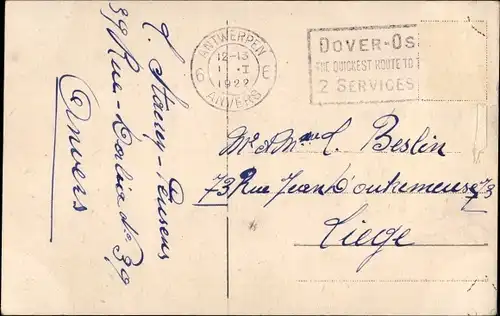 ANTWERPEN
12-13
11 · I
1922
6 E
ANVERS
DOVER-OS
THE QUICKEST ROUTE TO
2 SERVICES
39 Rue
39
Anvers
Mr & Mme L. Beslin
73 Rue Jean d'outremeuse 73
Liege